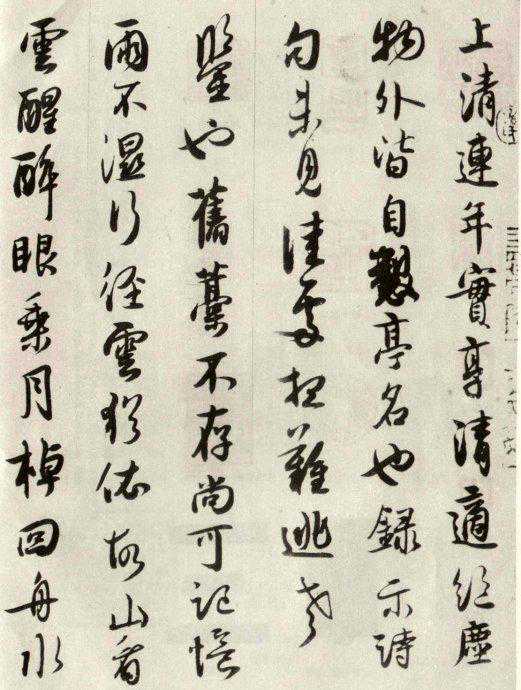 上清連年實享清適絕塵
物外皆自數亭名也錄示詩
句未見佳處極難逃老
鑒也舊藁不存尚可記憶
雨不濕行徑雲猶依故山看
雲醒醉眼乘月棹回舟水